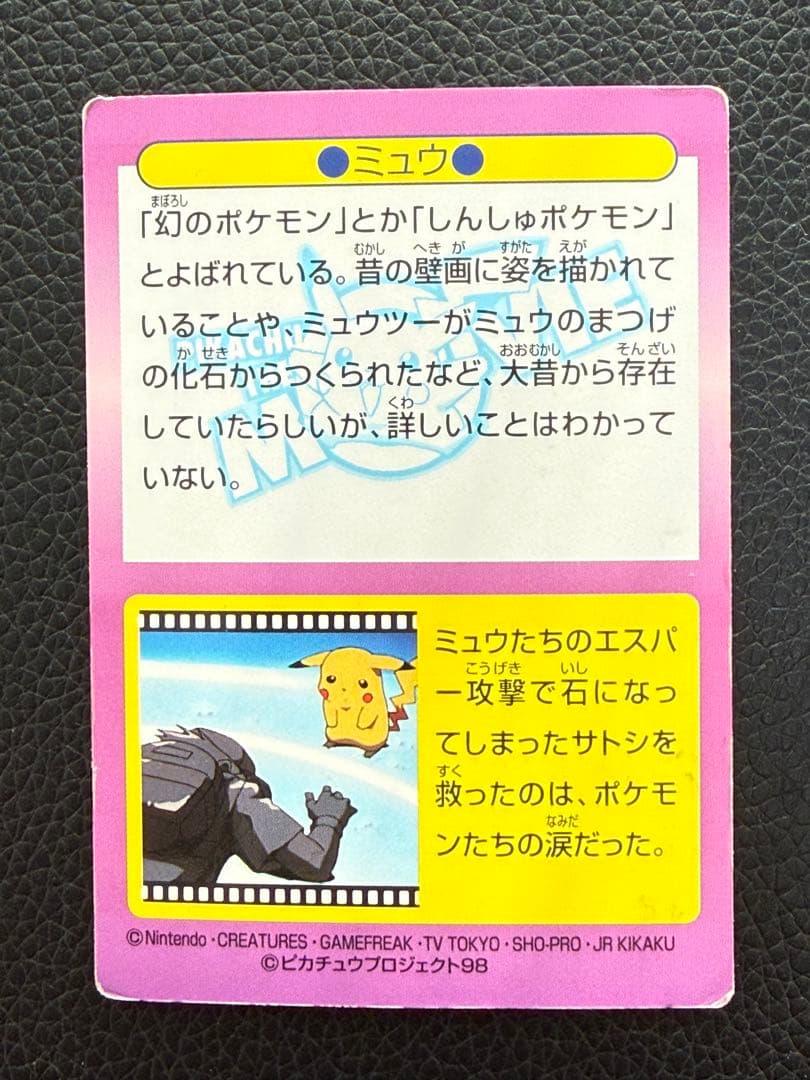 ●ミュウ●
「幻のポケモン」とか「しんしゅポケモン」
とよばれている。昔の壁画に姿を描かれて
いることや、ミュウツーがミュウのまつげ
の化石からつくられたなど、大昔から存在
していたらしいが、詳しいことはわかって
いない。
まぼろし
むかし へきが すがた えが
か せき おおむかし そんざい
くわ
PIKACHU
ミュウたちのエスパ
ー攻撃で石になっ
てしまったサトシを
救ったのは、ポケモ
ンたちの涙だった。
こうげき いし
すく
なみだ
©Nintendo・CREATURES・GAMEFREAK・TV TOKYO・SHO-PRO・JR KIKAKU
©ピカチュウプロジェクト98